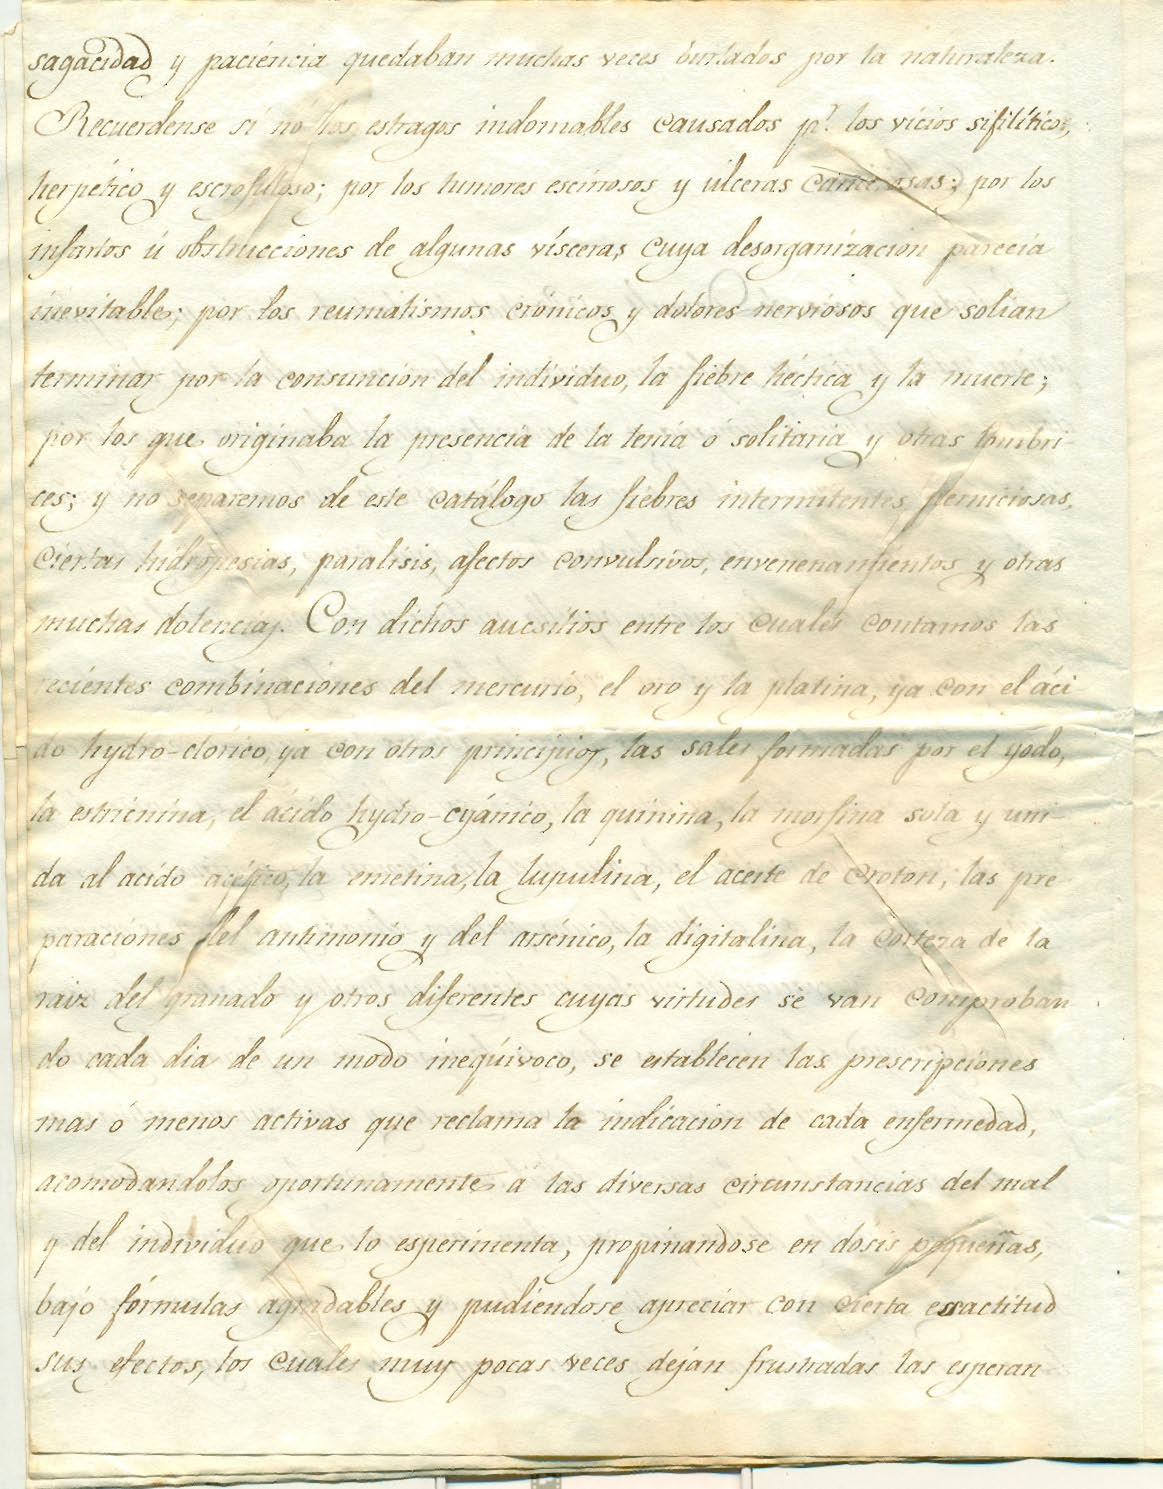 sagacidad y paciencia quedaban muchas veces burlados por la naturaleza.
Recuerdense si nó los estragos indomables causados pr. los vicios sifilítico,
herpético y escrofuloso; por los tumores escirrosos y úlceras cancerosas; por los
infartos ú obstrucciones de algunas vísceras cuya desorganizacion parecia
inevitable; por los reumatismos crónicos y dolores nerviosos que solian
terminar por la consuncion del individuo, la fiebre héctica y la muerte;
por los que originaba la presencia de la tenia ó solitaria y otras lombri-
ces; y no separemos de este catálogo las fiebres intermitentes perniciosas,
ciertas hidropesias, paralisis, afectos convulsivos, envenenamientos y otras
muchas dolencias. Con dichos aucsilios entre los cuales contamos las
recientes combinaciones del mercurio, el oro y la platina, ya con el áci-
do hydro-clorico, ya con otros principios, las sales formadas por el yodo,
la estricnina, el ácido hydro-cyánico, la quinina, la morfina sola y uni-
da al acido acético, la emetina, la lupulina, el aceite de croton, las pre-
paraciones del antimonio y del arsénico, la digitalina, la corteza de la
raiz del granado y otros diferentes cuyas virtudes se van comproban
do cada dia de un modo inequivoco, se establecen las prescripciones
mas ó menos activas que reclama la indicacion de cada enfermedad,
acomodandolos oportunamente á las diversas circunstancias del mal
y del individuo que lo esperimenta, propinandose en dósis pequeñas,
bajo fórmulas agradables y pudiendose apreciar con cierta exactitud
sus efectos, los cuales muy pocas veces dejan frustradas las esperan